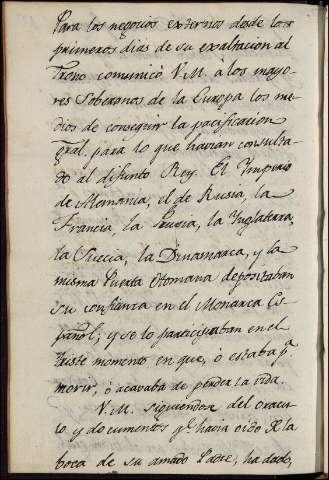 Para los negocios externos desde los
primeros dias de su exaltacion al
Trono comunicó V.M. à los mayo-
res Soberanos de la Europa los me-
dios de conseguir la pacificacion
gral. para lo que havian consulta-
do al difunto Rey. El Ymperio
de Alemania, el de Rusia, la
Francia, la Prusia, la Ynglaterra,
la Suecia, la Dinamarca, y la
misma Puerta Otomana depositaban
su confianza en el Monarca Es-
pañol; y se lo participaban en el
triste momento en que, ò estaba pa.
morir, ò acavaba de perder la vida.
V.M. siguiendo del oracu-
lo y documentos qe. havia oido de la
boca de su amado Padre, ha dado,